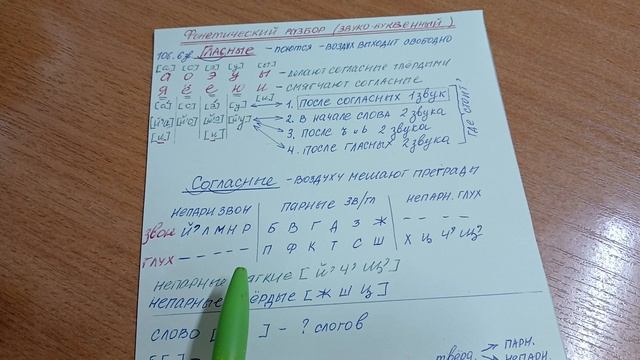 Фонетический разбор (звуко-буквенный)
10б. 6зв. Гласные - поются - воздух выходит свободно
[а] [о] [э] [у] [ы]
а о э у ы - делают согласные твёрдыми
я ё е ю и - смягчают согласные
[а] [о] [э] [у] [и] 1. после согласных 1 звук
[й'а] [й'о] [й'э] [й'у] 2. в начале слова 2 звука
3. после ъ и ь 2 звука
[и] [и] 4. после гласных 2 звука
где стоит?
Согласные - воздуху мешают преграды
непарн звон парные зв/гл непарн. глух
звон й' л м н р б в г д з ж – – – –
глух – – – – – п ф к т с ш х ц ч' щ'
непарные мягкие [й' ч' щ']
непарные твёрдые [ж ш ц]
слово [ ] - ? слогов
тверд. парн.
непарн.